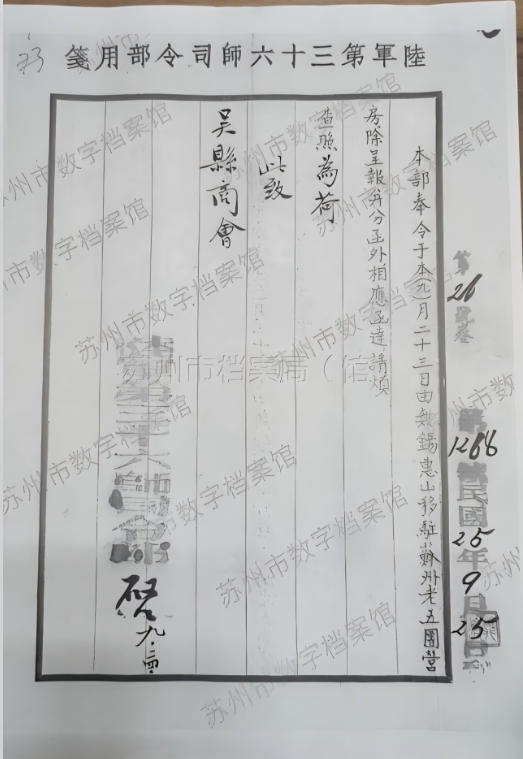 陸軍第三十六師司令部用箋
本部奉令于本(九)月二十三日由無錫惠山移駐蘇州老五團營
房除呈報并分函外相應函達請煩
查照為荷
此致
吳縣商會
陸軍第三十六師司令部
啓 九.二四
第26號卷
第1268號民國25年9月25日
蘇州市数字档案馆